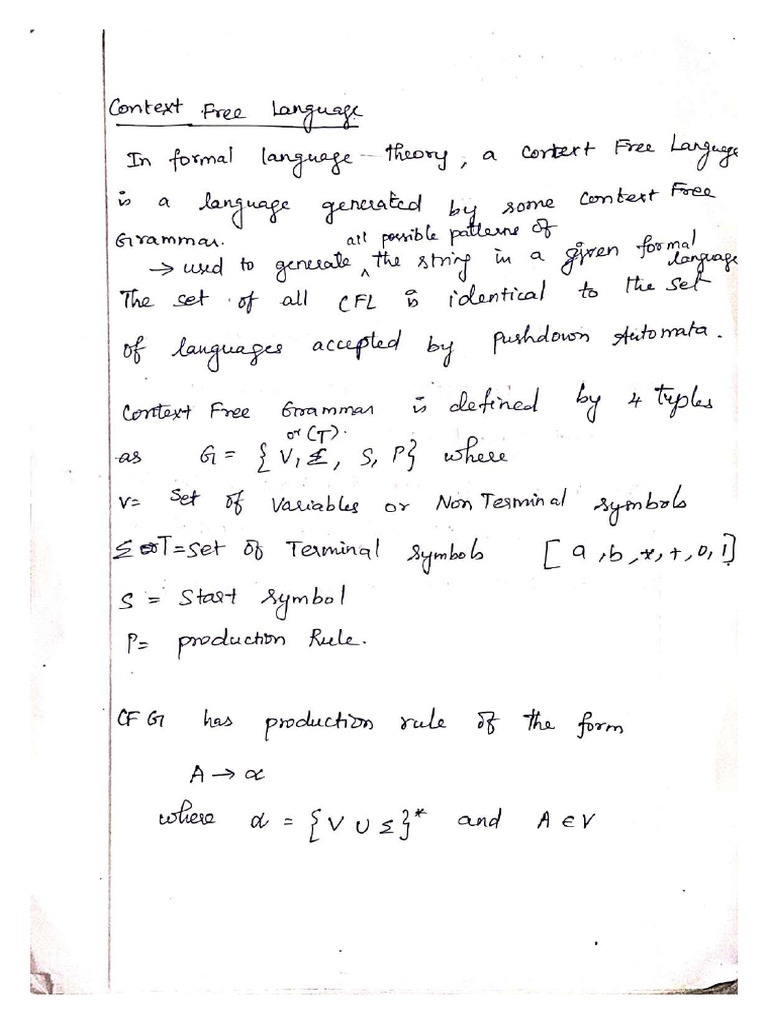 Context Free Language
In formal language theory, a context Free Language
is a language generated by some Context Free
Grammar.
→ used to generate ^ all possible patterns of the string in a given formal language
The set of all CFL is identical to the set
of languages accepted by pushdown Automata.
Context Free Grammar is defined by 4 tuples
as G = { V, Σ or (T), S, P} where
V= Set of Variables or Non Terminal symbols
Σ or T = Set of Terminal Symbols [a, b, *, +, 0, 1]
S = Start symbol
P= production Rule.
CFG has production rule of the form
A → α
where α = {V ∪ Σ}* and A ∈ V